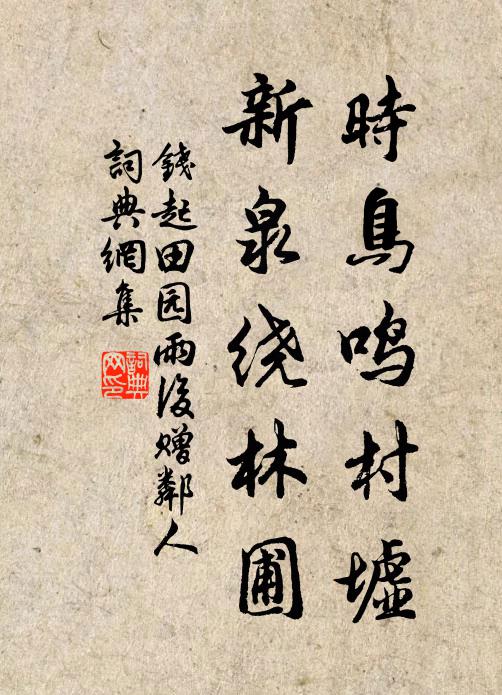 時鳥鳴村墟
新泉绕林圃
錢起田园雨後贈鄰人
詞典網集
詞典网印